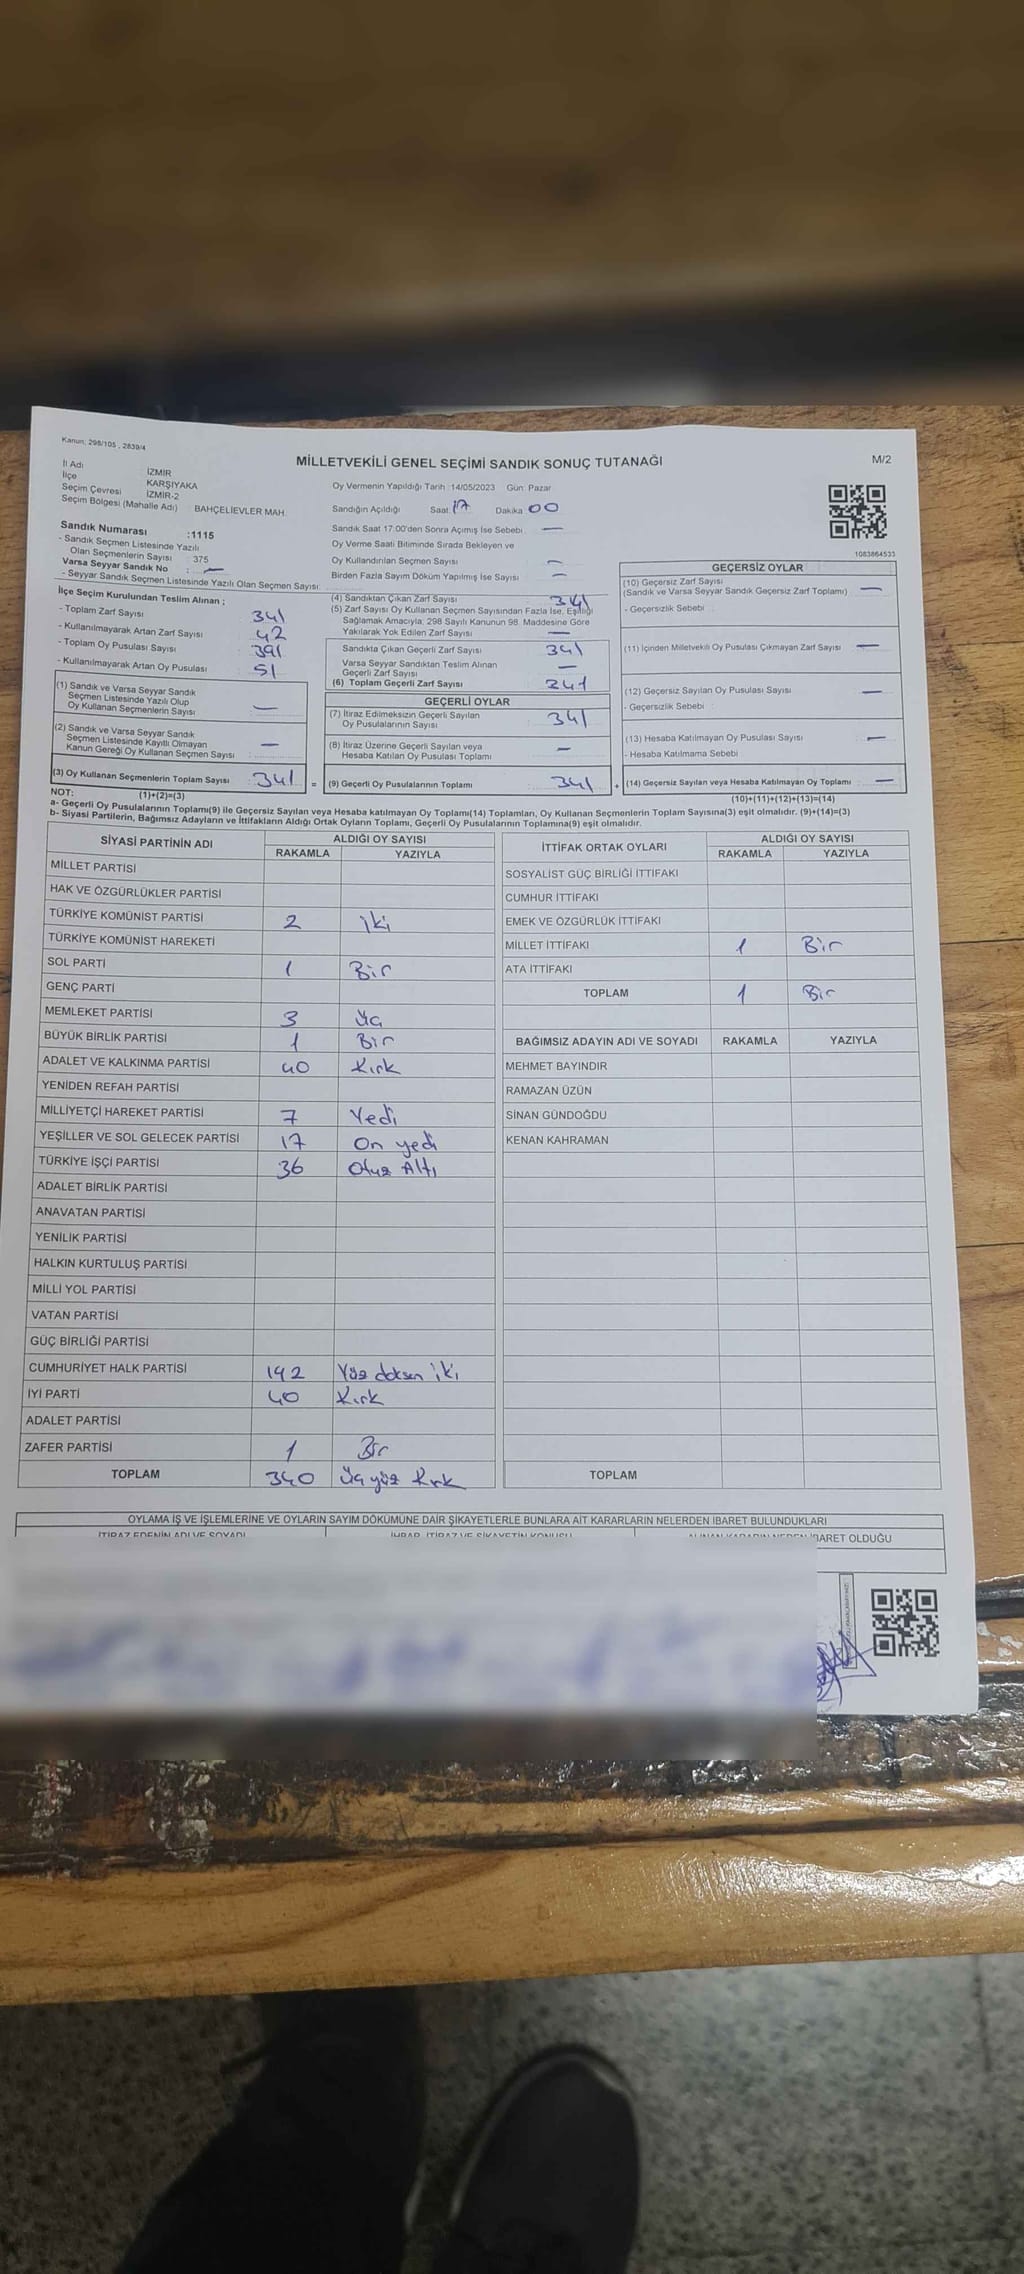 Kanun: 298/105 , 2839/4
MİLLETVEKİLİ GENEL SEÇİMİ SANDIK SONUÇ TUTANAĞI
M/2
İl Adı İZMİR
İlçe KARŞIYAKA
Seçim Çevresi İZMİR-2
Seçim Bölgesi (Mahalle Adı) BAHÇELİEVLER MAH.
Sandık Numarası :1115
- Sandık Seçmen Listesinde Yazılı
Olan Seçmenlerin Sayısı : 375
Varsa Seyyar Sandık No : —
- Seyyar Sandık Seçmen Listesinde Yazılı Olan Seçmen Sayısı:
Oy Vermenin Yapıldığı Tarih :14/05/2023 Gün: Pazar
Sandığın Açıldığı Saat 17 Dakika 00
Sandık Saat 17:00'den Sonra Açımış İse Sebebi —
Oy Verme Saati Bitiminde Sırada Bekleyen ve
Oy Kullandırılan Seçmen Sayısı —
Birden Fazla Sayım Döküm Yapılmış İse Sayısı —
1083864533
İlçe Seçim Kurulundan Teslim Alınan ;
- Toplam Zarf Sayısı 341
- Kullanılmayarak Artan Zarf Sayısı 42
- Toplam Oy Pusulası Sayısı 391
- Kullanılmayarak Artan Oy Pusulası 51
(1) Sandık ve Varsa Seyyar Sandık
Seçmen Listesinde Yazılı Olup
Oy Kullanan Seçmenlerin Sayısı —
(2) Sandık ve Varsa Seyyar Sandık
Seçmen Listesinde Kayıtlı Olmayan
Kanun Gereği Oy Kullanan Seçmen Sayısı —
(3) Oy Kullanan Seçmenlerin Toplam Sayısı 341 =
(1)+(2)=(3)
(4) Sandıktan Çıkan Zarf Sayısı 341
(5) Zarf Sayısı Oy Kullanan Seçmen Sayısından Fazla İse, Eşitliği
Sağlamak Amacıyla, 298 Sayılı Kanunun 98. Maddesine Göre
Yakılarak Yok Edilen Zarf Sayısı —
Sandıkta Çıkan Geçerli Zarf Sayısı 341
Varsa Seyyar Sandıktan Teslim Alınan
Geçerli Zarf Sayısı —
(6) Toplam Geçerli Zarf Sayısı 341
GEÇERLİ OYLAR
(7) İtiraz Edilmeksizin Geçerli Sayılan
Oy Pusulalarının Sayısı 341
(8) İtiraz Üzerine Geçerli Sayılan veya
Hesaba Katılan Oy Pusulası Toplamı —
(9) Geçerli Oy Pusulalarının Toplamı 341 +
GEÇERSİZ OYLAR
(10) Geçersiz Zarf Sayısı
(Sandık ve Varsa Seyyar Sandık Geçersiz Zarf Toplamı) —
- Geçersizlik Sebebi
(11) İçinden Milletvekili Oy Pusulası Çıkmayan Zarf Sayısı —
(12) Geçersiz Sayılan Oy Pusulası Sayısı —
- Geçersizlik Sebebi :
(13) Hesaba Katılmayan Oy Pusulası Sayısı —
- Hesaba Katılmama Sebebi
(14) Geçersiz Sayılan veya Hesaba Katılmayan Oy Toplamı —
(10)+(11)+(12)+(13)=(14)
NOT:
a- Geçerli Oy Pusulalarının Toplamı(9) ile Geçersiz Sayılan veya Hesaba katılmayan Oy Toplamı(14) Toplamları, Oy Kullanan Seçmenlerin Toplam Sayısına(3) eşit olmalıdır. (9)+(14)=(3)
b- Siyasi Partilerin, Bağımsız Adayların ve İttifakların Aldığı Ortak Oyların Toplamı, Geçerli Oy Pusulalarının Toplamına(9) eşit olmalıdır.
SİYASİ PARTİNİN ADI ALDIĞI OY SAYISI
RAKAMLA YAZIYLA
MİLLET PARTİSİ
HAK VE ÖZGÜRLÜKLER PARTİSİ
TÜRKİYE KOMÜNİST PARTİSİ 2 iki
TÜRKİYE KOMÜNİST HAREKETİ
SOL PARTİ 1 Bir
GENÇ PARTİ
MEMLEKET PARTİSİ 3 Üç
BÜYÜK BİRLİK PARTİSİ 1 Bir
ADALET VE KALKINMA PARTİSİ 40 Kırk
YENİDEN REFAH PARTİSİ
MİLLİYETÇİ HAREKET PARTİSİ 7 Yedi
YEŞİLLER VE SOL GELECEK PARTİSİ 17 On yedi
TÜRKİYE İŞÇİ PARTİSİ 36 Otuz Altı
ADALET BİRLİK PARTİSİ
ANAVATAN PARTİSİ
YENİLİK PARTİSİ
HALKIN KURTULUŞ PARTİSİ
MİLLİ YOL PARTİSİ
VATAN PARTİSİ
GÜÇ BİRLİĞİ PARTİSİ
CUMHURİYET HALK PARTİSİ 192 Yüz doksan iki
İYİ PARTİ 40 Kırk
ADALET PARTİSİ
ZAFER PARTİSİ 1 Bir
TOPLAM 340 Üç yüz Kırk
İTTİFAK ORTAK OYLARI ALDIĞI OY SAYISI
RAKAMLA YAZIYLA
SOSYALİST GÜÇ BİRLİĞİ İTTİFAKI
CUMHUR İTTİFAKI
EMEK VE ÖZGÜRLÜK İTTİFAKI
MİLLET İTTİFAKI 1 Bir
ATA İTTİFAKI
TOPLAM 1 Bir
BAĞIMSIZ ADAYIN ADI VE SOYADI RAKAMLA YAZIYLA
MEHMET BAYINDIR
RAMAZAN ÜZÜN
SİNAN GÜNDOĞDU
KENAN KAHRAMAN
TOPLAM
OYLAMA İŞ VE İŞLEMLERİNE VE OYLARIN SAYIM DÖKÜMÜNE DAİR ŞİKAYETLERLE BUNLARA AİT KARARLARIN NELERDEN İBARET BULUNDUKLARI
İTİRAZ EDENİN ADI VE SOYADI İHBAR, İTİRAZ VE ŞİKAYETİN KONUSU ALINAN KARARIN NEDEN İBARET OLDUĞU